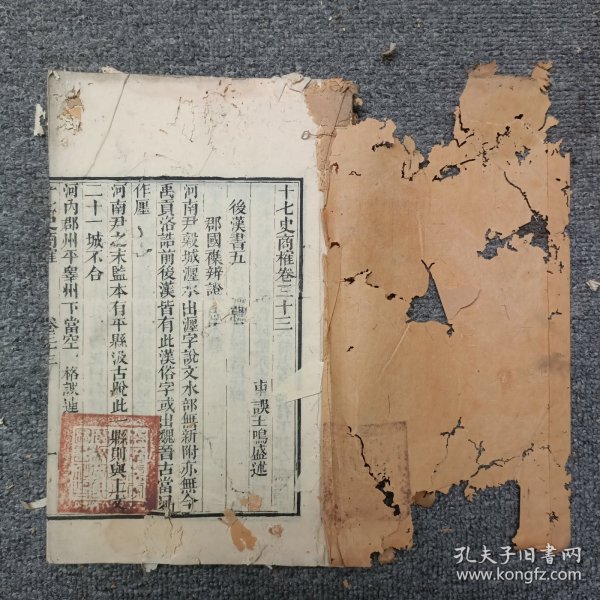 十七史商榷卷三十三
東吳王鳴盛述
後漢書五
郡國襍辨證
河南尹穀城瀍水出瀍字說文水部無新附亦無今
禹貢洛誥前後漢皆有此漢俗字或出魏晉古當
作廛
河南尹之末監本有平縣汲古脫此一縣則與上文
二十一城不合
河內郡州平睾州下當空一格誤連
十七史商榷
卷三十三
一
孔夫子旧书网
www.kongfz.com